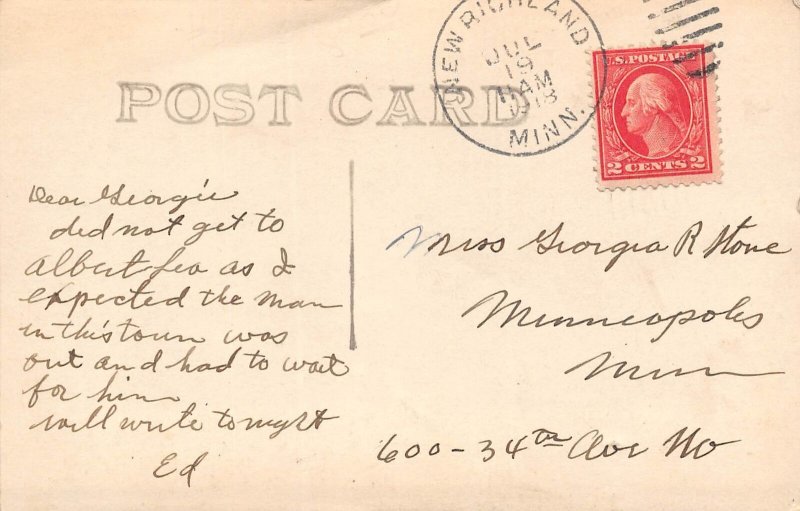 POST CARD
NEW RICHLAND
JUL
19
11 AM
1918
MINN.
U.S. POSTAGE
2 CENTS 2
Dear Georgie
did not get to
Albert Lea as I
expected the man
in this town was
out and had to wait
for him
will write tonight
Ed
Miss Georgia R Stone
Minneapolis
Minn
600 - 34th Ave No